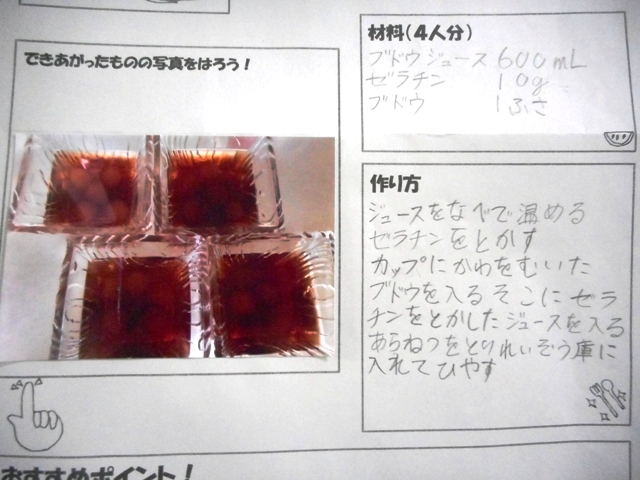 できあがったものの写真をはろう!
材料(4人分)
ブドウジュース 600mL
ゼラチン 10g
ブドウ 1ふさ
作り方
ジュースをなべで温める
ゼラチンをとかす
カップにかわをむいた
ブドウを入るそこにゼラ
チンをとかしたジュースを入る
あらねつをとりれいぞう庫に
入れてひやす
おすすめポイント!